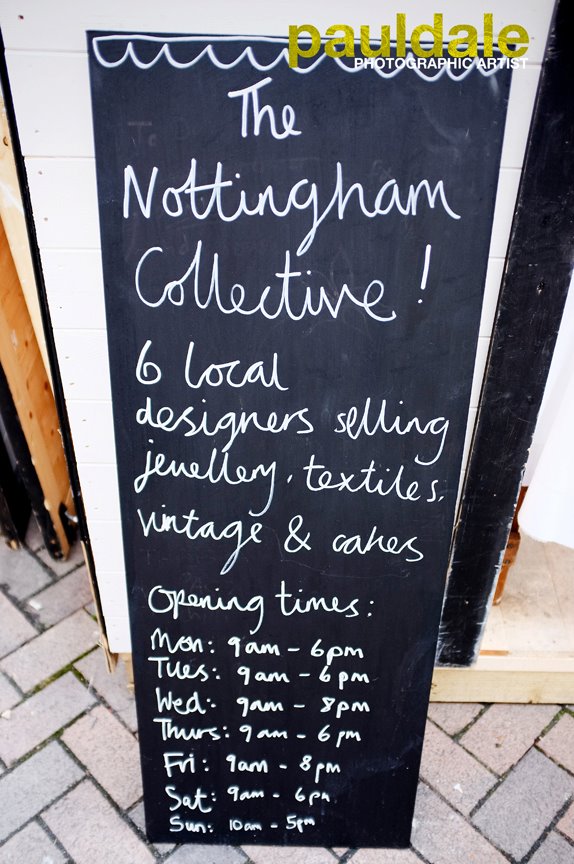 pauldale
PHOTOGRAPHIC ARTIST
The
Nottingham
Collective!
6 local
designers selling
jewellery, textiles,
vintage & cakes
Opening times:
Mon: 9am - 6pm
Tues: 9am - 6pm
Wed: 9am - 8pm
Thurs: 9am - 6pm
Fri: 9am - 8pm
Sat: 9am - 6pm
Sun: 10am - 5pm